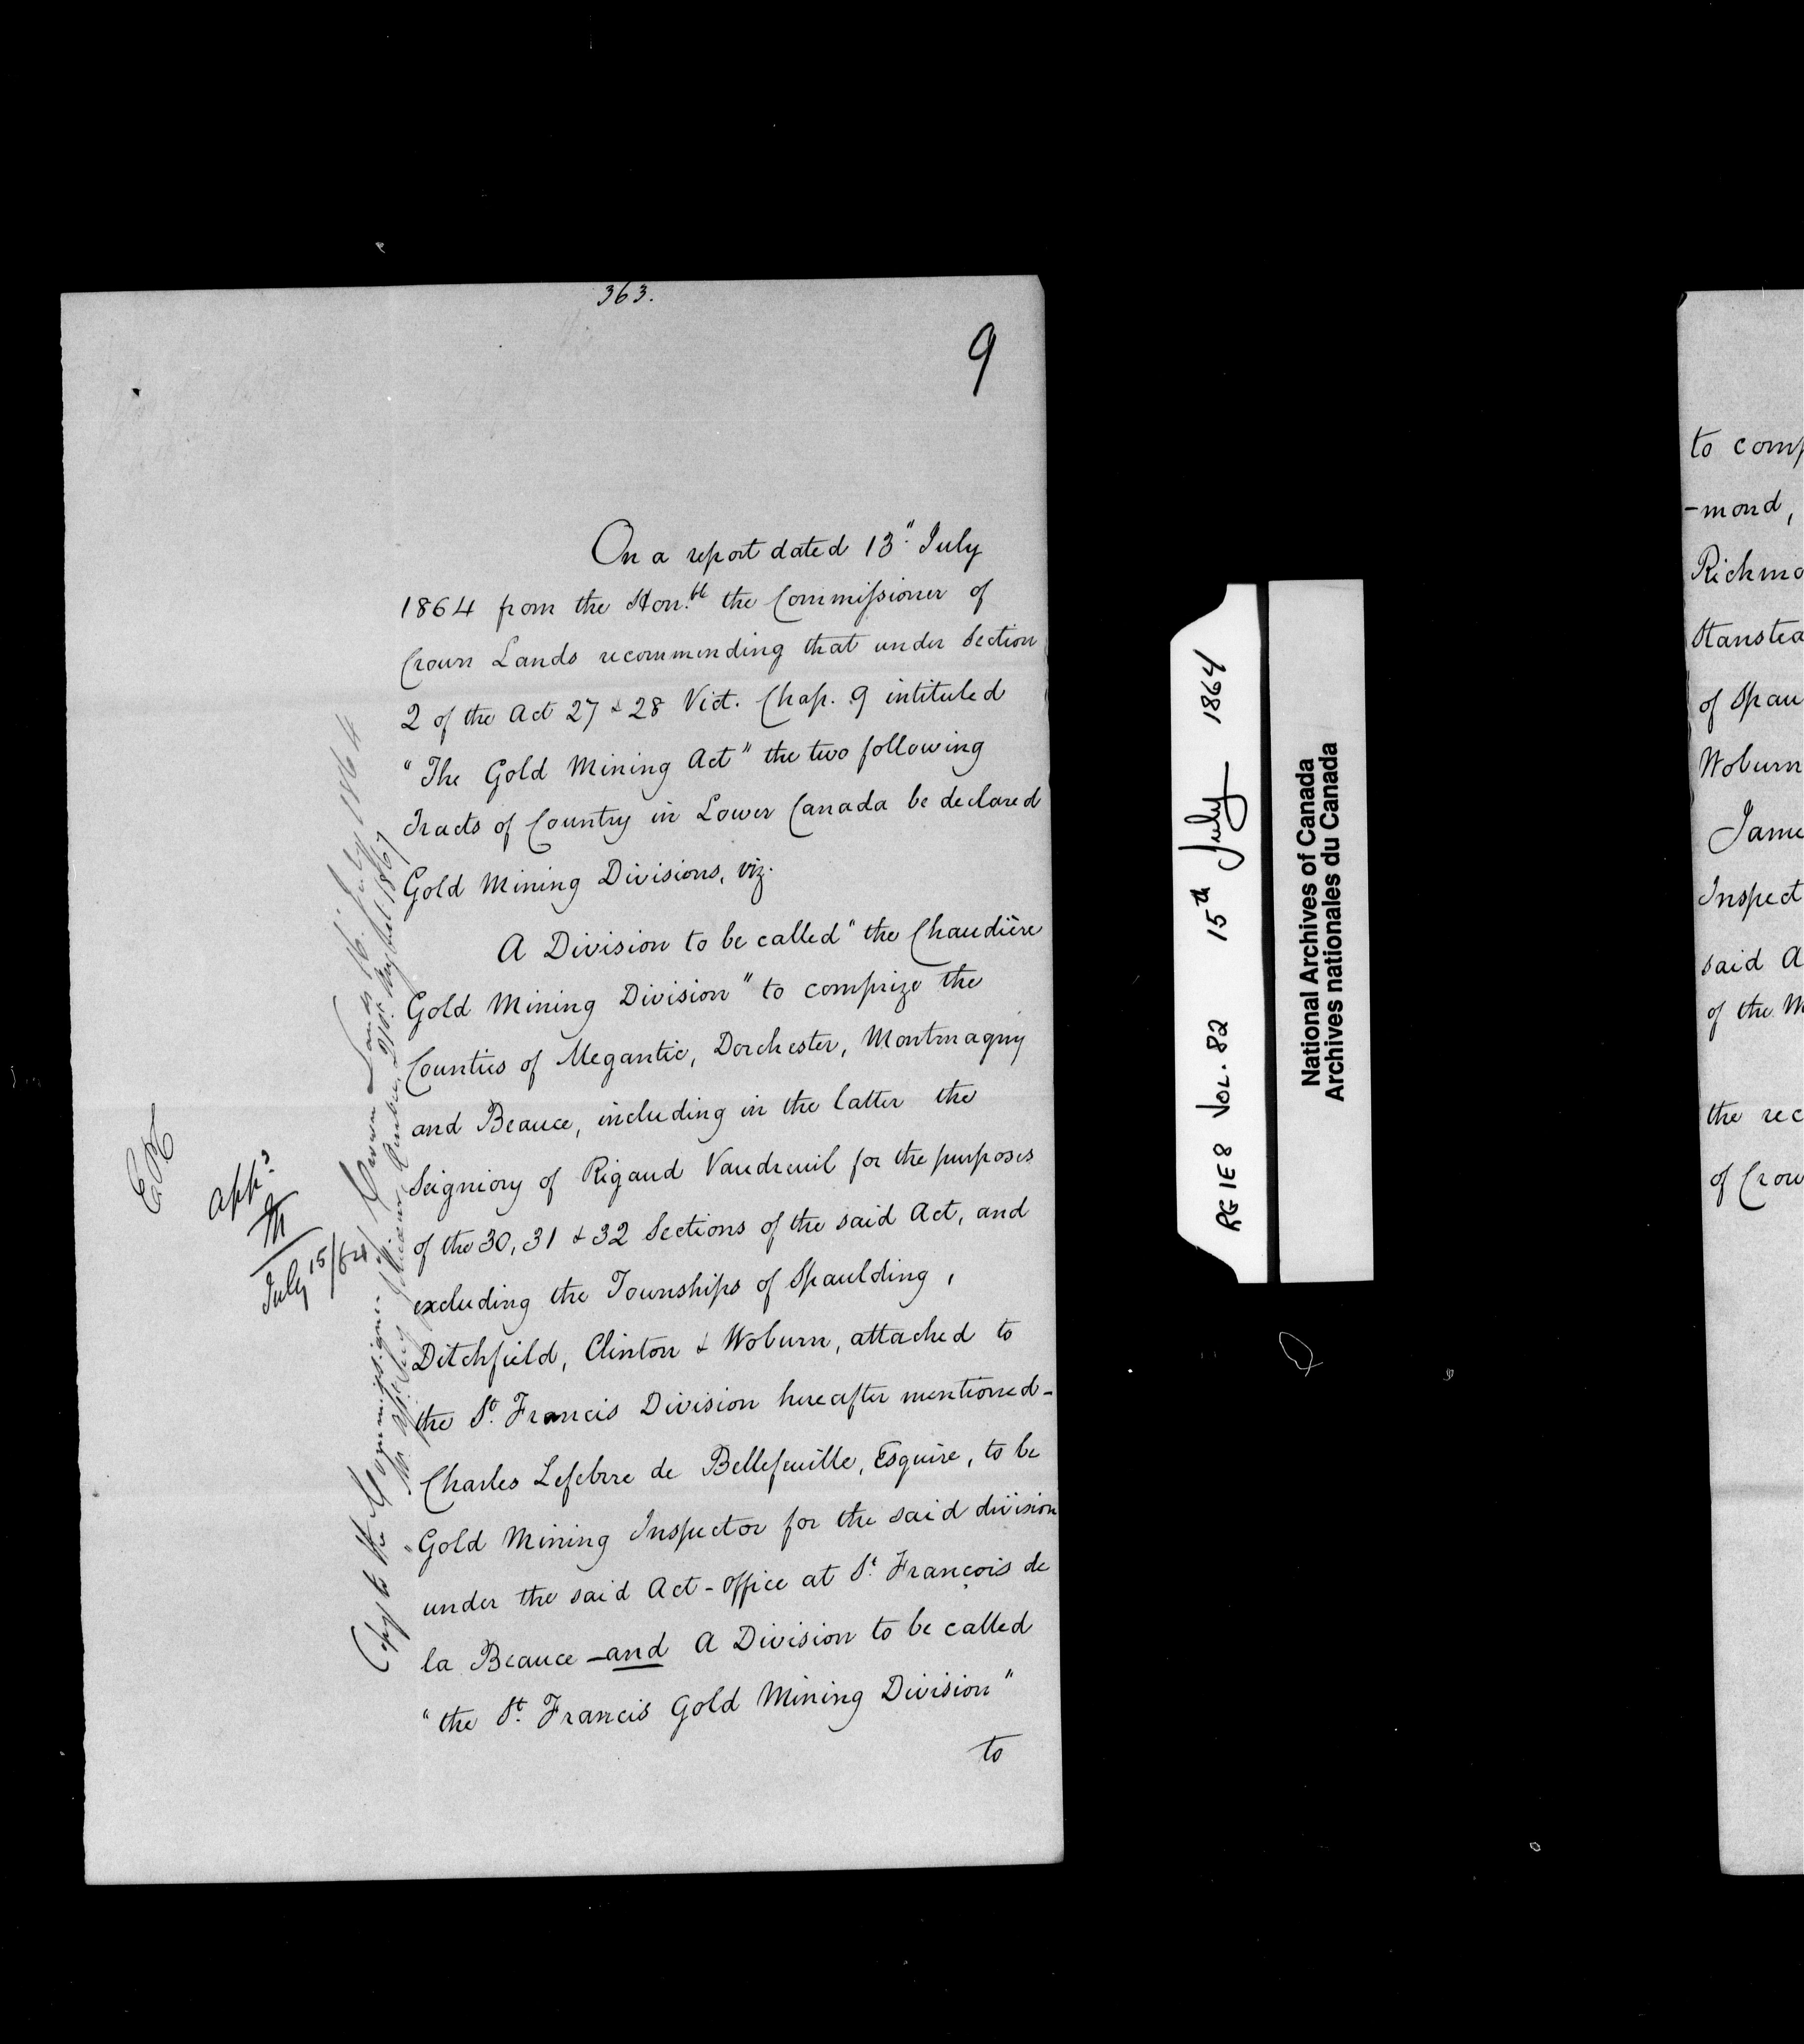 363.
9
On a report dated 13" July
1864 from the Hon.ble the Commissioner of
Crown Lands recommending that under Section
2 of the Act 27 & 28 Vict. Chap. 9 intituled
"The Gold Mining Act" the two following
Tracts of Country in Lower Canada be declared
Gold Mining Divisions, viz.
A Division to be called "the Chaudière
Gold Mining Division" to comprize the
Counties of Megantic, Dorchester, Montmagny
and Beauce, including in the latter the
Seigniory of Rigaud Vaudreuil for the purposes
of the 30, 31 & 32 Sections of the said Act, and
excluding the Townships of Spaulding,
Ditchfield, Clinton & Woburn, attached to
the St. Francis Division hereafter mentioned-
Charles Lefebvre de Bellefeuille, Esquire, to be
"Gold Mining Inspector for the said division
under the said Act - Office at St. François de
la Beauce - and A Division to be called
"the St. Francis Gold Mining Division"
to
app.d
July 15/64
Copy to the Commissioner of Crown Lands 16. July 1864
RG 1 E 8 VOL. 82 15th July 1864
National Archives of Canada
Archives nationales du Canada
to comp
-mond,
Richmo
Stanstea
of Spau
Woburn
Jame
Inspect
said A
of the M
the rec
of Crow